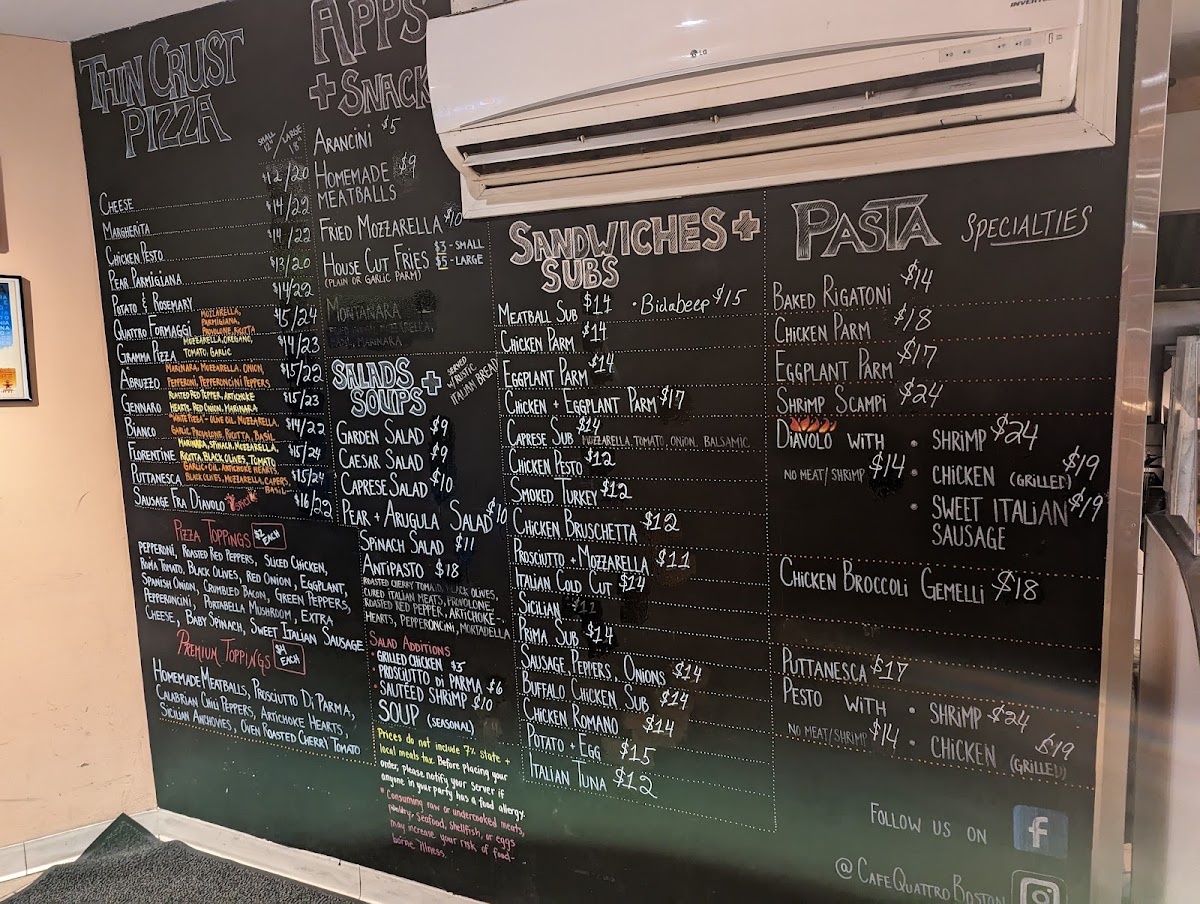 THIN CRUST
PIZZA
SMALL 12" / LARGE 18"
CHEESE $12/20
MARGHERITA $14/22
CHICKEN PESTO $14/22
PEAR PARMIGIANA $13/20
POTATO & ROSEMARY $14/22
QUATTRO FORMAGGI MOZZARELLA, PARMIGIANA, PROVOLONE, RICOTTA $15/24
GRAMMA PIZZA MOZZARELLA, OREGANO, TOMATO, GARLIC $14/23
ABRUZZO MARINARA, MOZZARELLA, ONION, PEPPERONI, PEPPERONCINI PEPPERS $15/22
GENNARO ROASTED RED PEPPER, ARTICHOKE HEARTS, RED ONION, MARINARA $15/23
BIANCO "WHITE PIZZA" - OLIVE OIL, MOZZARELLA, GARLIC, PROVOLONE, RICOTTA, BASIL $14/22
FLORENTINE MARINARA, SPINACH, MOZZARELLA, RICOTTA, BLACK OLIVES, TOMATO $15/24
PUTTANESCA GARLIC + OIL, ARTICHOKE HEARTS, BLACK OLIVES, MOZZARELLA, CAPERS, BASIL $15/24
SAUSAGE FRA DIAVOLO SPICY $16/22
PIZZA TOPPINGS EACH
PEPPERONI, ROASTED RED PEPPERS, SLICED CHICKEN,
ROMA TOMATO, BLACK OLIVES, RED ONION, EGGPLANT,
SPANISH ONION, CRUMBLED BACON, GREEN PEPPERS,
PEPPERONCINI, PORTABELLA MUSHROOM, EXTRA
CHEESE, BABY SPINACH, SWEET ITALIAN SAUSAGE
PREMIUM TOPPINGS $4 EACH
HOMEMADE MEATBALLS, PROSCIUTTO DI PARMA,
CALABRIAN CHILI PEPPERS, ARTICHOKE HEARTS,
SICILIAN ANCHOVIES, OVEN ROASTED CHERRY TOMATO
APPS
+ SNACK
ARANCINI $5
HOMEMADE MEATBALLS $9
FRIED MOZZARELLA $10
HOUSE CUT FRIES $3 - SMALL
(PLAIN OR GARLIC PARM) $5 - LARGE
MONTANARA
MOZZARELLA,
BASIL, MARINARA
SALADS +
SOUPS
SERVED W/RUSTIC ITALIAN BREAD
GARDEN SALAD $9
CAESAR SALAD $9
CAPRESE SALAD $10
PEAR + ARUGULA SALAD $10
SPINACH SALAD $11
ANTIPASTO $18
ROASTED CHERRY TOMATO, BLACK OLIVES,
CURED ITALIAN MEATS, PROVOLONE,
ROASTED RED PEPPER, ARTICHOKE-
HEARTS, PEPPERONCINI, MORTADELLA
SALAD ADDITIONS
• GRILLED CHICKEN $5
• PROSCIUTTO DI PARMA $6
• SAUTÉED SHRIMP $10
SOUP (SEASONAL)
Prices do not include 7% state +
local meals tax. Before placing your
order, please notify your server if
anyone in your party has a food allergy.
* Consuming raw or undercooked meats,
poultry, seafood, shellfish, or eggs
may increase your risk of food-
borne illness.
LG
INVERTER
SANDWICHES +
SUBS
MEATBALL SUB $14 • BIDABEEP $15
CHICKEN PARM $14
EGGPLANT PARM $14
CHICKEN + EGGPLANT PARM $17
CAPRESE SUB $14 MOZZARELLA, TOMATO, ONION, BALSAMIC
CHICKEN PESTO $12
SMOKED TURKEY $12
CHICKEN BRUSCHETTA $12
PROSCIUTTO + MOZZARELLA $11
ITALIAN COLD CUT $14
SICILIAN $11
PRIMA SUB $14
SAUSAGE, PEPPERS, ONIONS $14
BUFFALO CHICKEN SUB $14
CHICKEN ROMANO $14
POTATO + EGG $15
ITALIAN TUNA $12
PASTA SPECIALTIES
BAKED RIGATONI $14
CHICKEN PARM $18
EGGPLANT PARM $17
SHRIMP SCAMPI $24
DIAVOLO WITH • SHRIMP $24
NO MEAT/SHRIMP $14 • CHICKEN (GRILLED) $19
• SWEET ITALIAN SAUSAGE $19
CHICKEN BROCCOLI GEMELLI $18
PUTTANESCA $17
PESTO WITH • SHRIMP $24
NO MEAT/SHRIMP $14 • CHICKEN (GRILLED) $19
FOLLOW US ON f
@CAFEQUATTROBOSTON